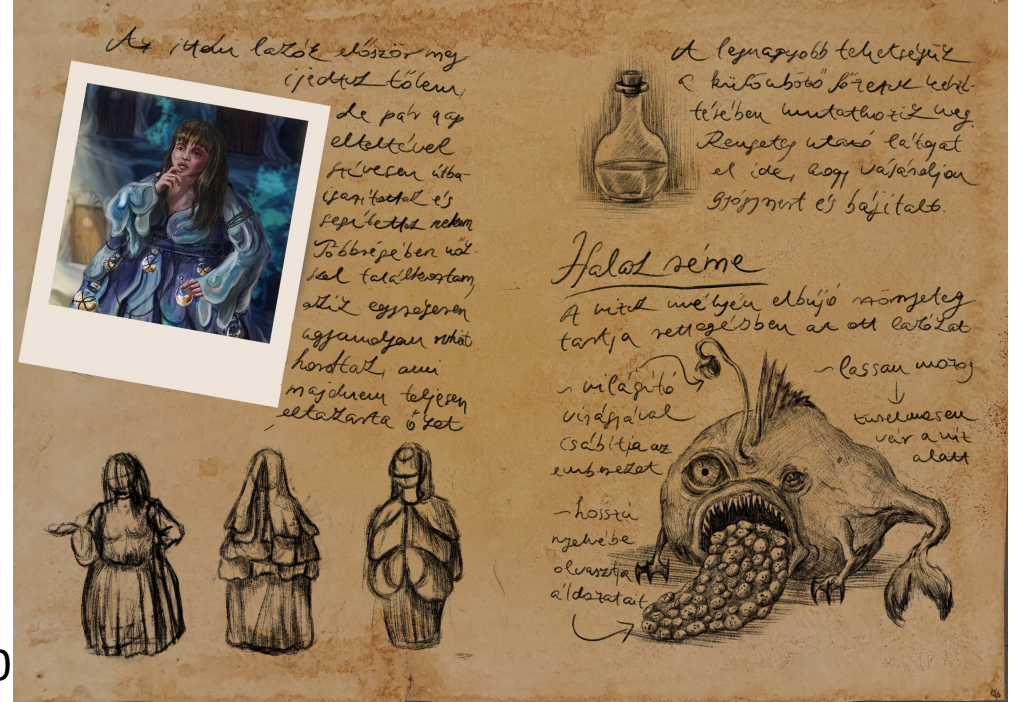 Az itteni lakók először meg
ijedtek tőlem,
de pár nap
elteltével
szívesen útba-
igazítottak és
segítettek nekem
Többségében nők-
kel találkoztam,
akik egységesen
ugyanolyan ruhát
hordtak, ami
majdnem teljesen
eltakarta őket
A legnagyobb tehetségük
a különböző főzetek készí-
tésében mutatkozik meg.
Rengeteg utazó látogat
el ide, hogy vásároljon
gyógyírt és bájitalt.
Halak réme
A vizek mélyén elbújó szörnyeteg
tartja rettegésben az ott lakókat
~ világító
virágjával
csábítja az
embereket
~ hosszú
nyelvébe
olvasztja
áldozatait
~ lassan mozog
türelmesen
vár a víz
alatt